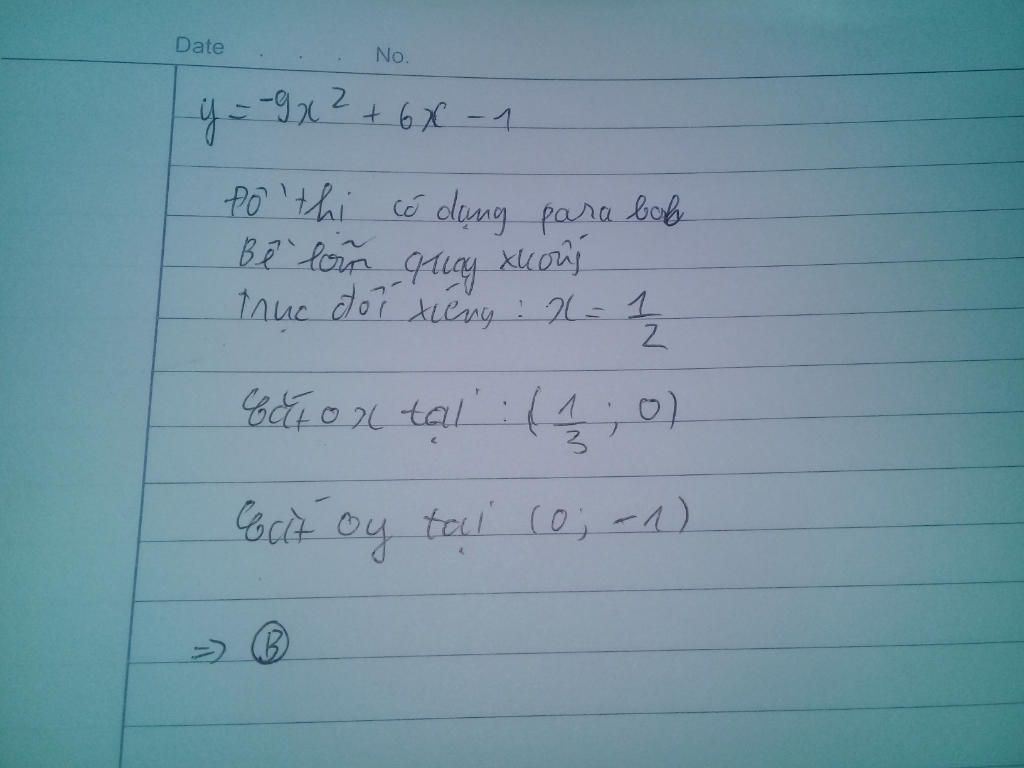 Date . . . No.
y = -9x² + 6x - 1
Đồ thị có dạng parabol
Bề lõm quay xuống
trục đối xứng : x = 1/2
Cắt ox tại : (1/3 ; 0)
Cắt oy tại (0; -1)
=> B